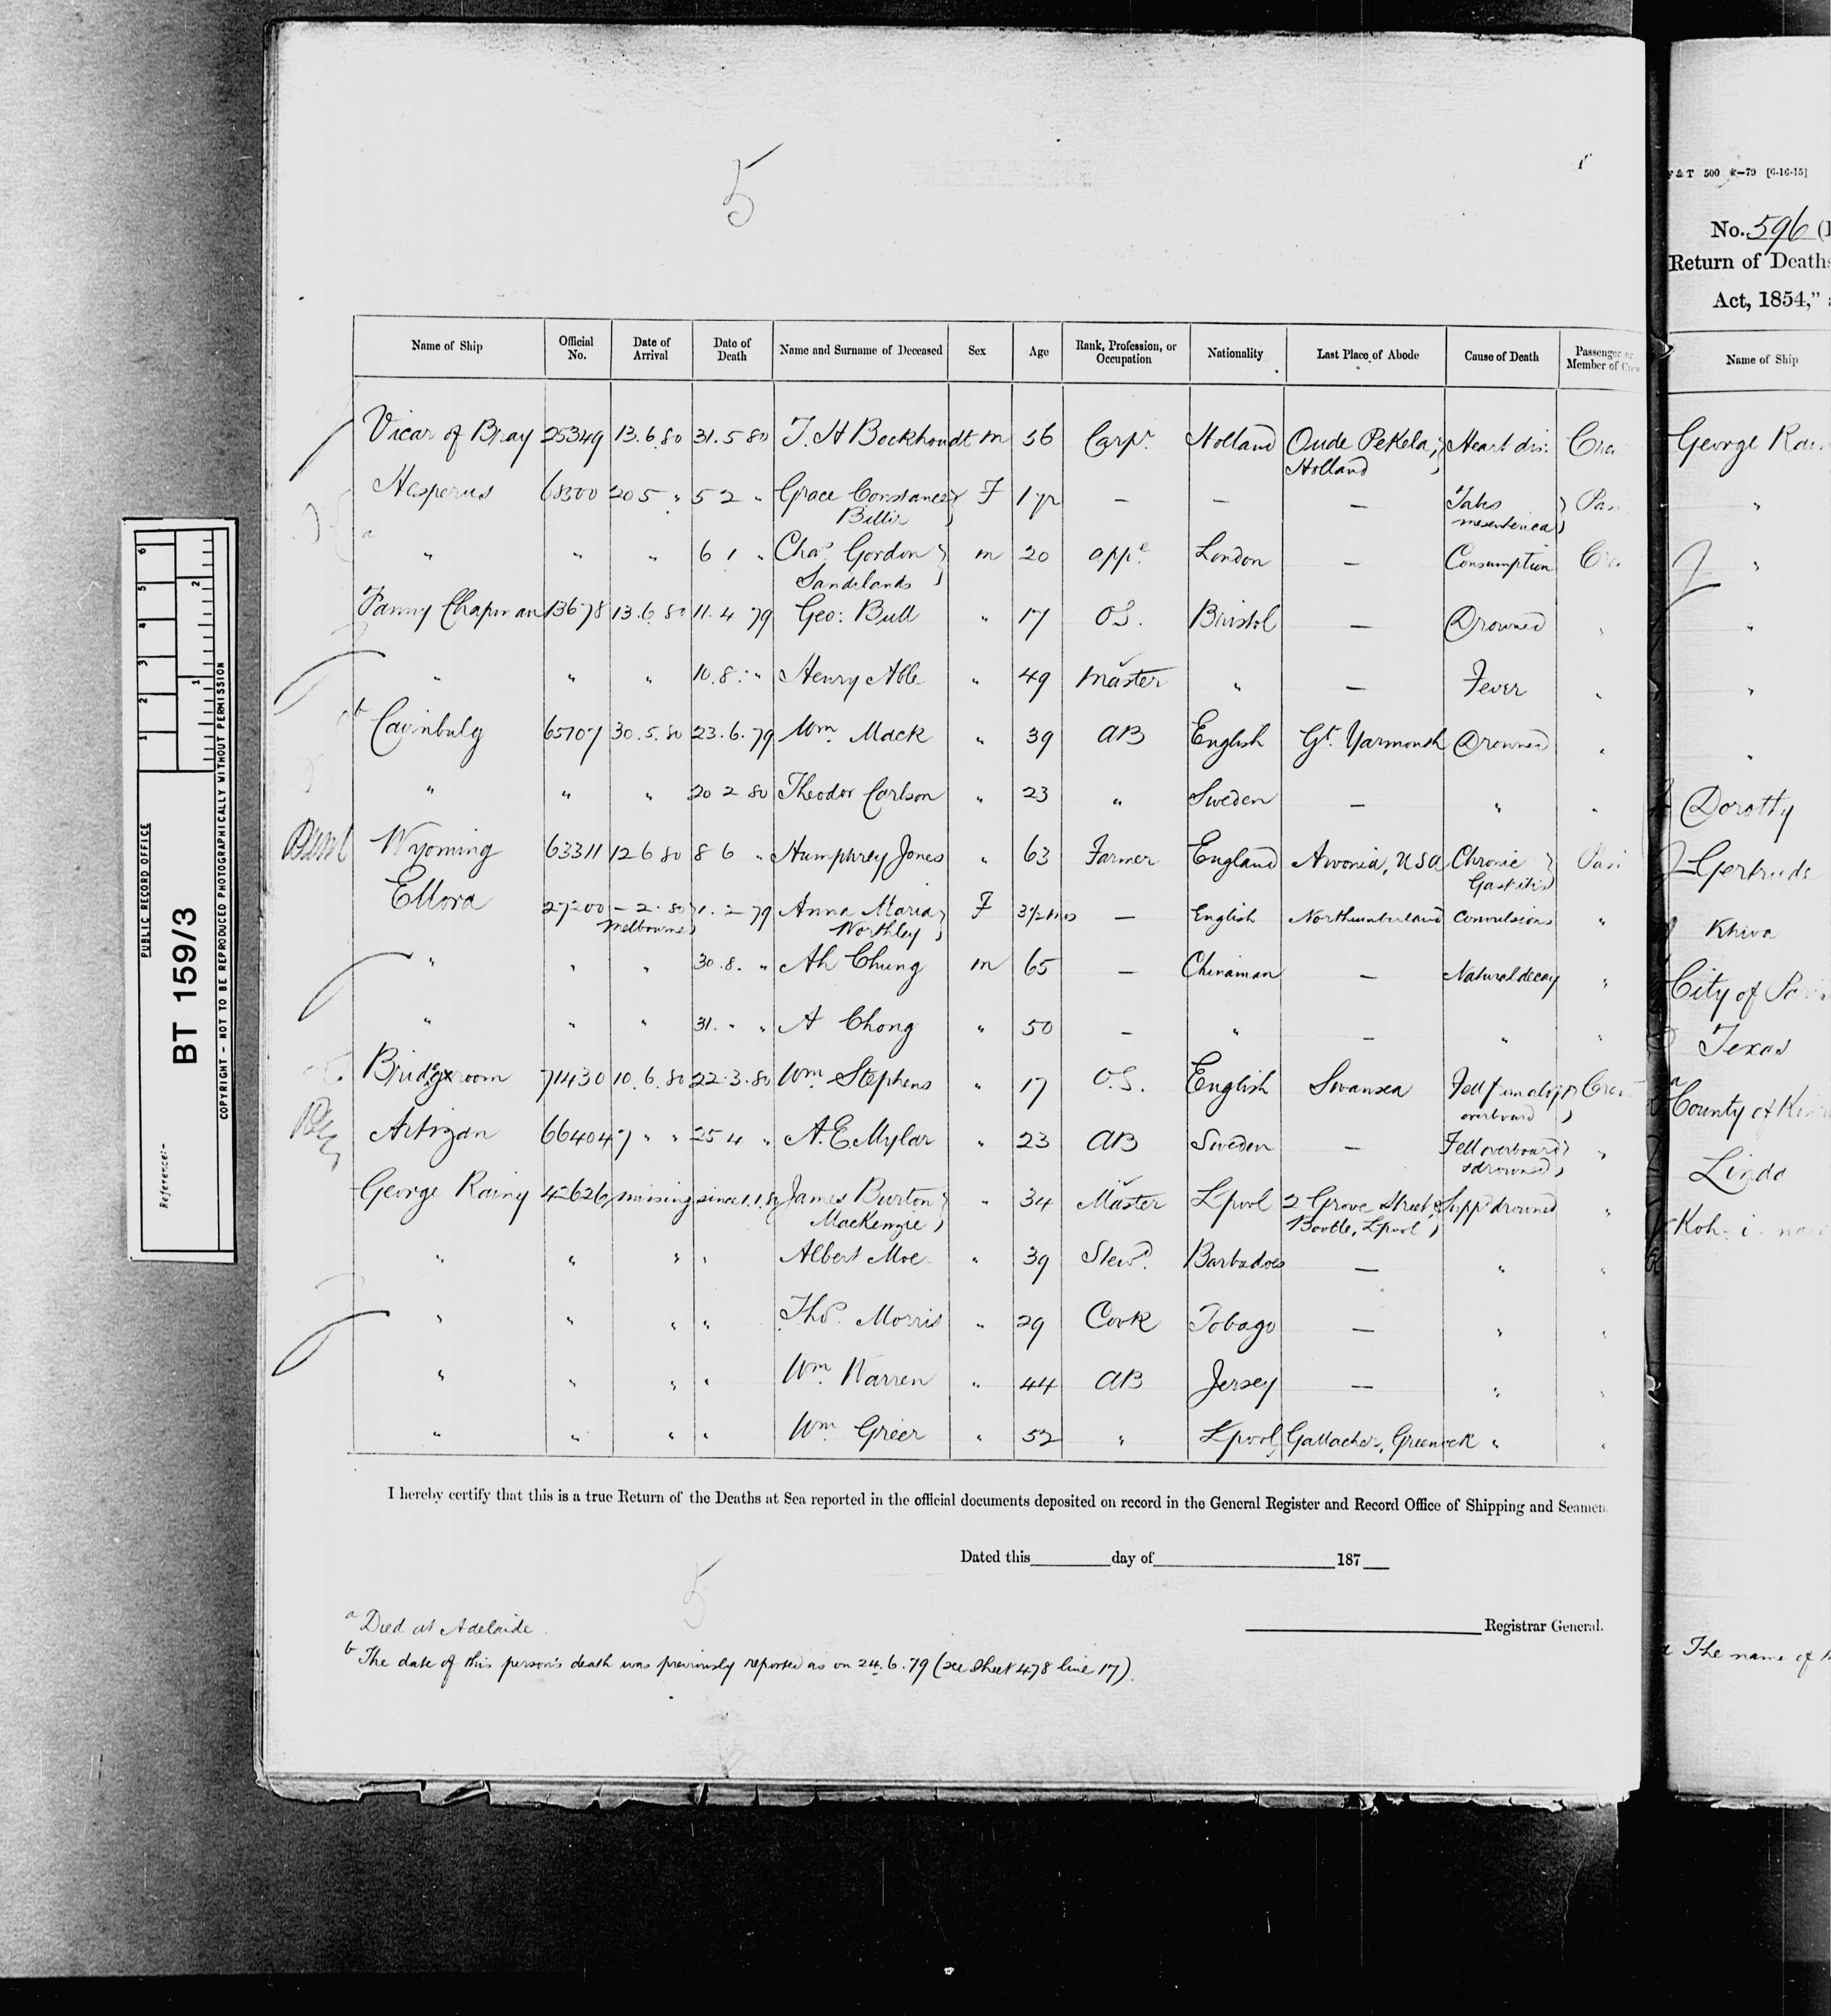 5
Name of Ship | Official No. | Date of Arrival | Date of Death | Name and Surname of Deceased | Sex | Age | Rank, Profession, or Occupation | Nationality | Last Place of Abode | Cause of Death | Passenger or Member of Crew
Vicar of Bray | 25349 | 13.6.80 | 31.5.80 | J. H Bockhoudt | m | 56 | Carpr. | Holland | Oude PeKela, Holland | Heart dis: | Cre
Hesperus | 68300 | 20 5 " | 5 2 " | Grace Constance Billir | F | 1 yr | — | — | — | Tabes mesenterica | Pas
a " | " | " | 6 1 " | Chas. Gordon Sandilands | m | 20 | appe. | London | — | Consumption | Cre
Fanny Chapman | 13678 | 13.6.80 | 11.4 79 | Geo: Bull | " | 17 | O.S. | Bristol | — | Drowned | "
" | " | " | 10.8. " | Henry Able | " | 49 | Master | " | — | Fever | "
b Cairnbulg | 65107 | 30.5.80 | 23.6.79 | Wm. Mack | " | 39 | AB | English | Gt. Yarmouth | Drowned | "
" | " | " | 20 2 80 | Theodor Carlson | " | 23 | " | Sweden | — | " | "
Wyoming | 63311 | 12 6 80 | 8 6 " | Humphrey Jones | " | 63 | Farmer | England | Arvonia, USA | Chronic Gastritis | Pas
Ellora | 27200 | – 2. 80 Melbourne | 1. 2 79 | Anna Maria Northley | F | 3½ mos | — | English | Northumberland | Convulsions | "
" | " | " | 30.8. " | Ah Chung | m | 65 | — | Chinaman | — | Natural decay | "
" | " | " | 31. " " | A Chong | " | 50 | — | " | — | " | "
Bridgroom | 71430 | 10.6.80 | 22.3.80 | Wm Stephens | " | 17 | O.S. | English | Swansea | Fell fm aloft overboard | Cre
Artizan | 66404 | 7 " " | 25 4 " | A. E. Mylar | " | 23 | AB | Sweden | — | Fell overboard & drowned | "
George Rainy | 42626 | missing since 1.1.80 | James Burton MacKenzie | " | 34 | Master | L'pool | 2 Grove Street, Bootle, L'pool | Suppd drowned | "
" | " | " | " | Albert Moe | " | 39 | Stewd. | Barbadoes | — | " | "
" | " | " | " | Thos. Morris | " | 29 | Cook | Tobago | — | " | "
" | " | " | " | Wm. Warren | " | 44 | AB | Jersey | — | " | "
" | " | " | " | Wm. Greer | " | 52 | " | L'pool | Gallacher, Greenock | " | "
I hereby certify that this is a true Return of the Deaths at Sea reported in the official documents deposited on record in the General Register and Record Office of Shipping and Seamen.
Dated this day of 187
Registrar General.
5
a Died at Adelaide.
b The date of this person's death was previously reported as on 24.6.79 (see Sheet 478 line 17).
PUBLIC RECORD OFFICE
Reference:-
BT 159/3
COPYRIGHT - NOT TO BE REPRODUCED PHOTOGRAPHICALLY WITHOUT PERMISSION
1 2 3 4 5 6
1 2
No. 596
Return of Deaths
Act, 1854,"
Name of Ship
George
"
"
"
"
"
Dorothy
Gertrude
Khiva
City of
Texas
County of
Linda
Koh-i-noor
The name of